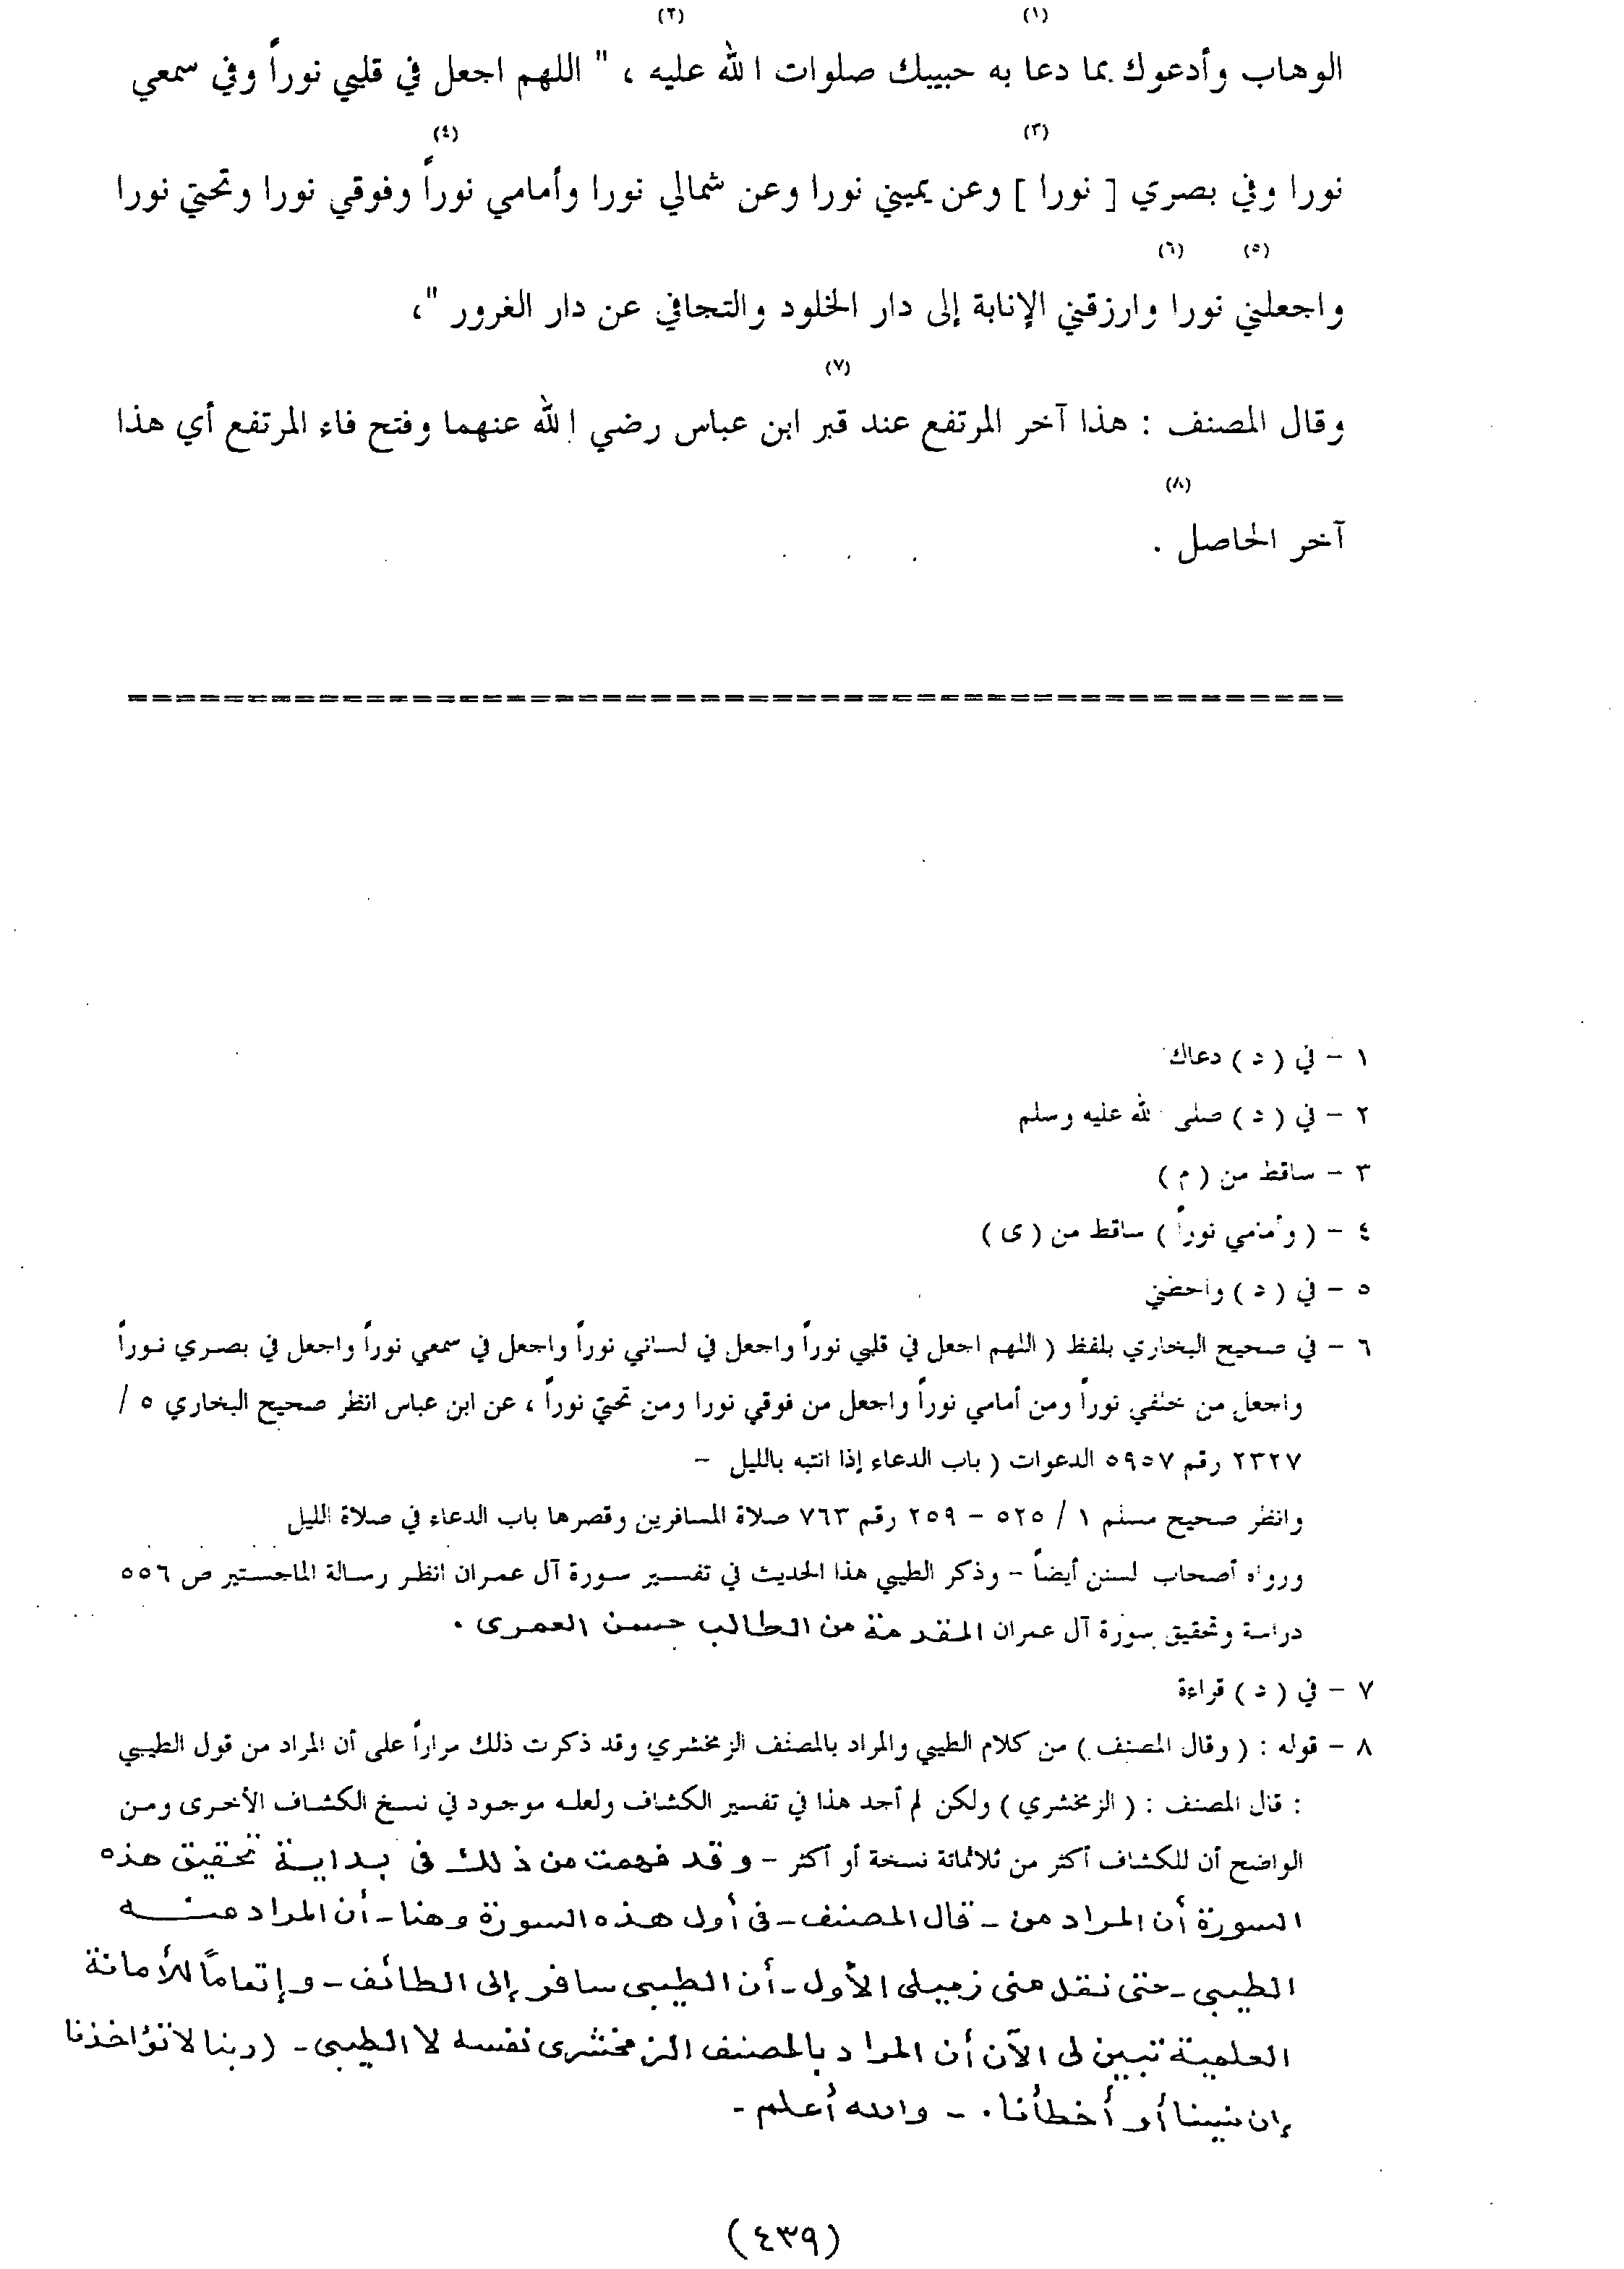 (١) (٢)
الوهاب وأدعوك بما دعا به حبيبك صلوات الله عليه ، " اللهم اجعل في قلبي نوراً وفي سمعي
(٣) (٤)
نورا وفي بصري [ نورا ] وعن يميني نورا وعن شمالي نورا وأمامي نوراً وفوقي نورا وتحتي نورا
(٥) (٦)
واجعلني نورا وارزقني الإنابة إلى دار الخلود والتجافي عن دار الغرور "،
(٧)
وقال المصنف : هذا آخر المرتفع عند قبر ابن عباس رضي الله عنهما وفتح فاء المرتفع أي هذا
(٨)
آخر الحاصل .
١ - في ( د ) دعاك
٢ - في ( د ) صلى الله عليه وسلم
٣ - ساقط من ( م )
٤ - ( وأمامي نوراً ) ساقط من ( ى )
٥ - في ( د )
٦ - في صحيح البخاري بلفظ ( اللهم اجعل في قلبي نوراً واجعل في لساني نوراً واجعل في سمعي نوراً واجعل في بصري نوراً
واجعل من خلفي نوراً ومن أمامي نوراً واجعل من فوقي نورا ومن تحتي نوراً ، عن ابن عباس انظر صحيح البخاري ٥ /
٢٣٢٧ رقم ٥٩٥٧ الدعوات ( باب الدعاء إذا انتبه بالليل -
وانظر صحيح مسلم ١ / ٥٢٥ - ٢٥٩ رقم ٧٦٣ صلاة المسافرين وقصرها باب الدعاء في صلاة الليل
ورواه أصحاب لسنن أيضاً - وذكر الطيبي هذا الحديث في تفسير سورة آل عمران انظر رسالة الماجستير ص ٥٥٦
دراسة وتحقيق سورة آل عمران المقدمة من الطالب حسن العمرى .
٧ - في ( د ) قراءة
٨ - قوله : ( وقال المصنف ) من كلام الطيبي والمراد بالمصنف الزمخشري وقد ذكرت ذلك مراراً على أن المراد من قول الطيبي
: قال المصنف : ( الزمخشري ) ولكن لم أجد هذا في تفسير الكشاف ولعله موجود في نسخ الكشاف الأخرى ومن
الواضح أن للكشاف أكثر من ثلاثمائة نسخة أو أكثر - وقد فهمت من ذلك فى بداية تحقيق هذه
السورة أن المراد من - قال المصنف - فى أول هذه السورة وهنا - أن المراد منه
الطيبى - حتى نقل منى زميلى الأول - أن الطيبى سافر إلى الطائف - وإتماماً للأمانة
العلمية تبين لى الآن أن المراد بالمصنف الزمخشرى نفسه لا الطيبى - ( ربنا لا تؤاخذنا
إن نسينا أو أخطأنا . - والله أعلم -
(٤٣٩)